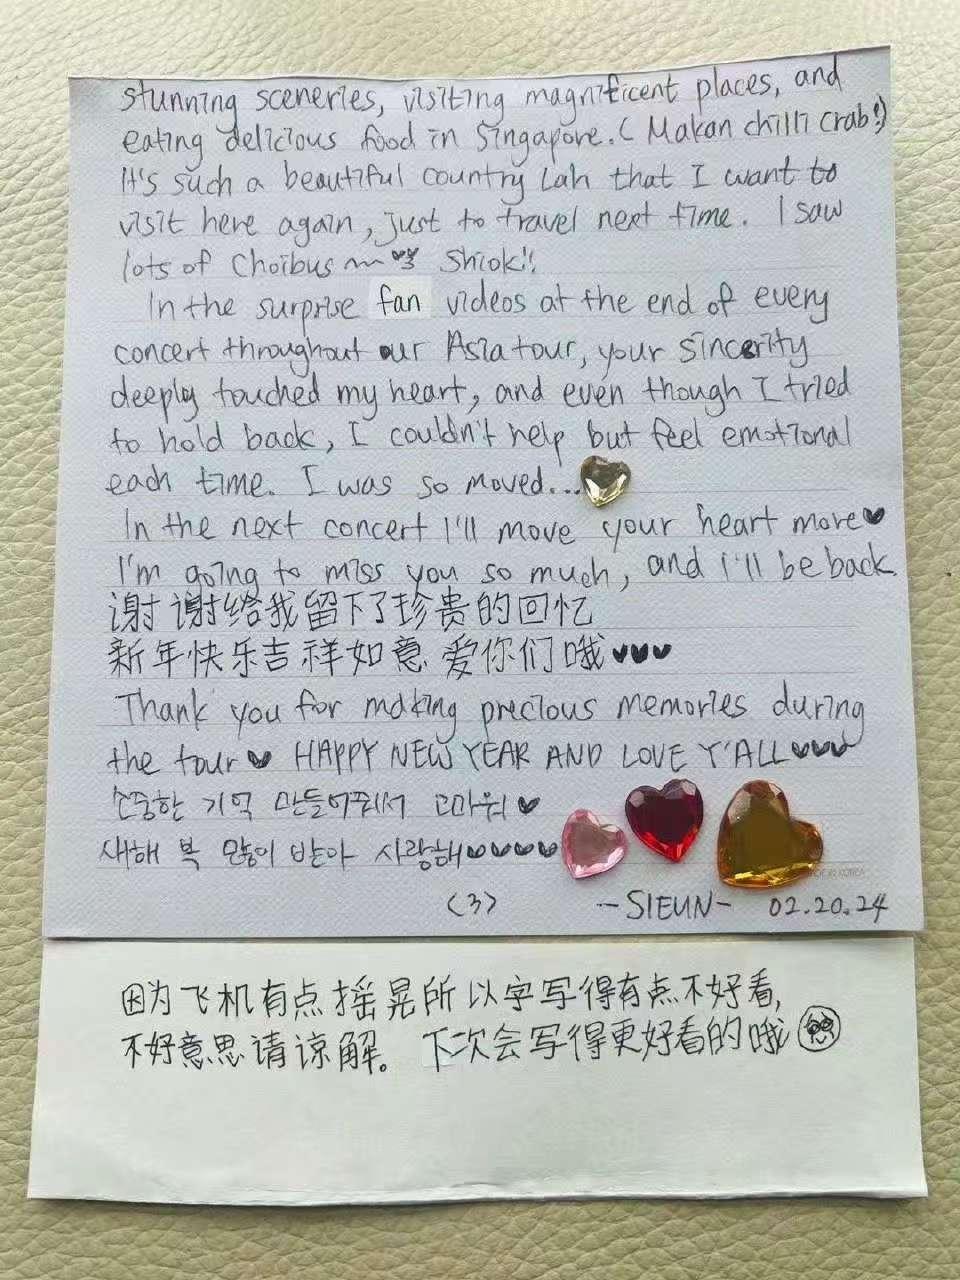 stunning sceneries, visiting magnificent places, and
eating delicious food in Singapore. (Makan chilli crab!)
It's such a beautiful country Lah that I want to
visit here again, just to travel next time. I saw
lots of Choibus Shiok!!
In the surprise fan videos at the end of every
concert throughout our Asia tour, your sincerity
deeply touched my heart, and even though I tried
to hold back, I couldn't help but feel emotional
each time. I was so moved...
In the next concert I'll move your heart more♥
I'm going to miss you so much, and I'll be back.
谢谢给我留下了珍贵的回忆
新年快乐吉祥如意 爱你们哦♥♥♥
Thank you for making precious memories during
the tour♥ HAPPY NEW YEAR AND LOVE Y'ALL♥♥♥
소중한 기억 만들어줘서 고마워♥
새해 복 많이 받아 사랑해♥♥♥♥
KOREA
<3> -SIEUN- 02.20.24
因为飞机有点摇晃所以字写得有点不好看,
不好意思请谅解。 下次会写得更好看的哦